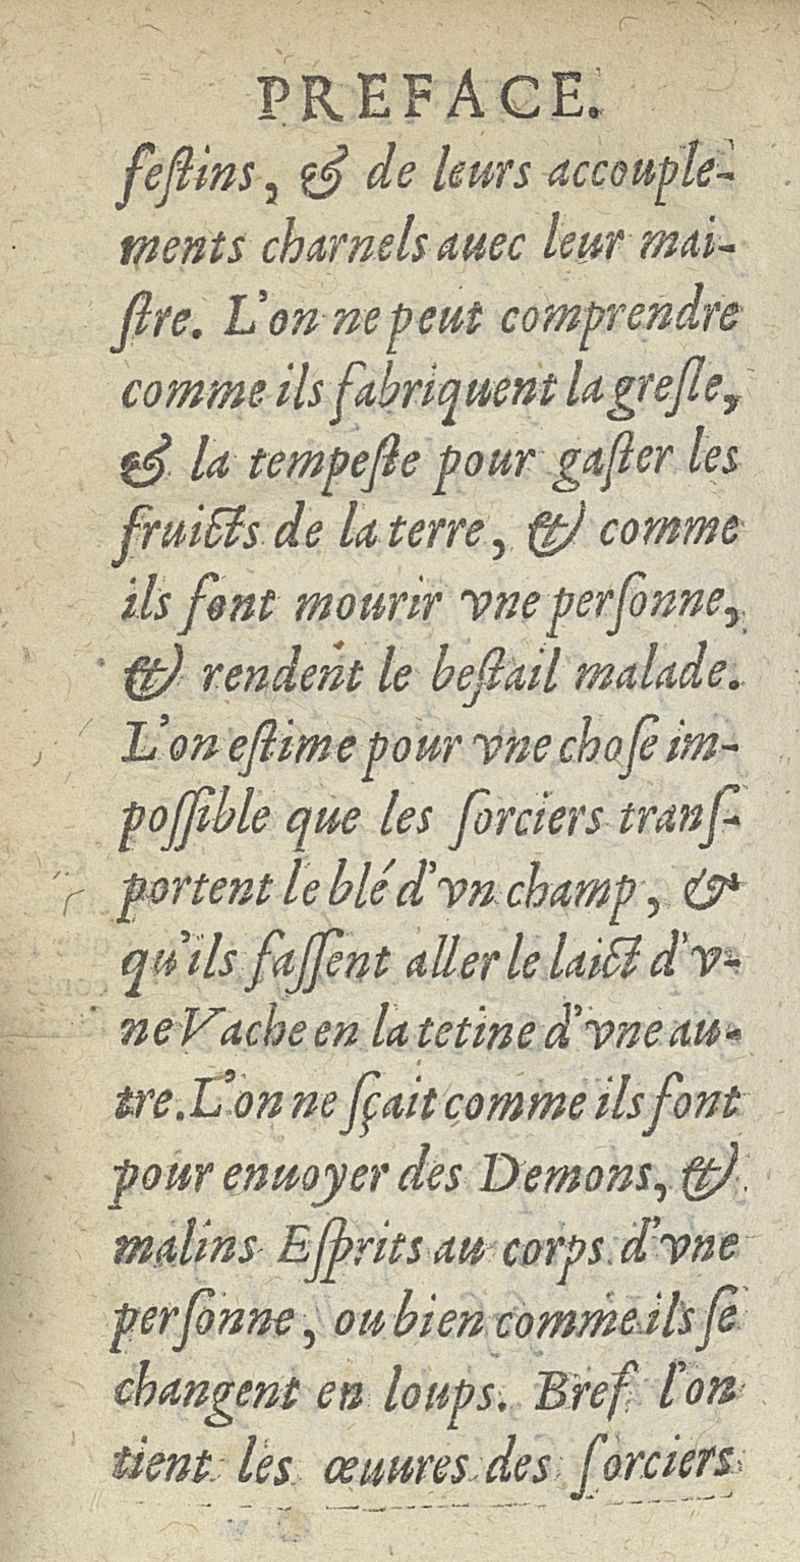 PREFACE.
feſtins, & de leurs accouple-
ments charnels auec leur mai-
ſtre. L'on ne peut comprendre
comme ils fabriquent la greſle,
& la tempeſte pour gaſter les
fruicts de la terre, & comme
ils font mourir vne perſonne,
& rendent le beſtail malade.
L'on eſtime pour vne choſe im-
poſſible que les ſorciers tranſ-
portent le blé d'vn champ, &
qu'ils faſſent aller le laict d'v-
ne Vache en la tetine d'vne au-
tre. L'on ne ſçait comme ils font
pour enuoyer des Demons, &
malins Eſprits au corps d'vne
perſonne, ou bien comme ils ſe
changent en loups. Bref l'on
tient les œuures des ſorciers